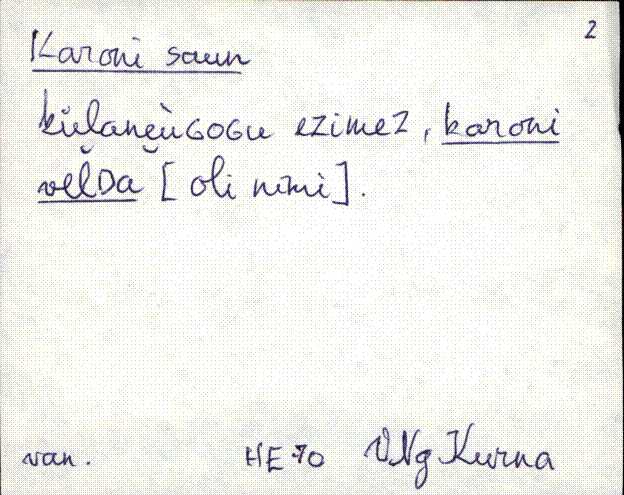 2
Karoni saun
külanèùGOGu ezimez, karoni
velDa [oli nimi].
van. HE 70 VNg Kurna